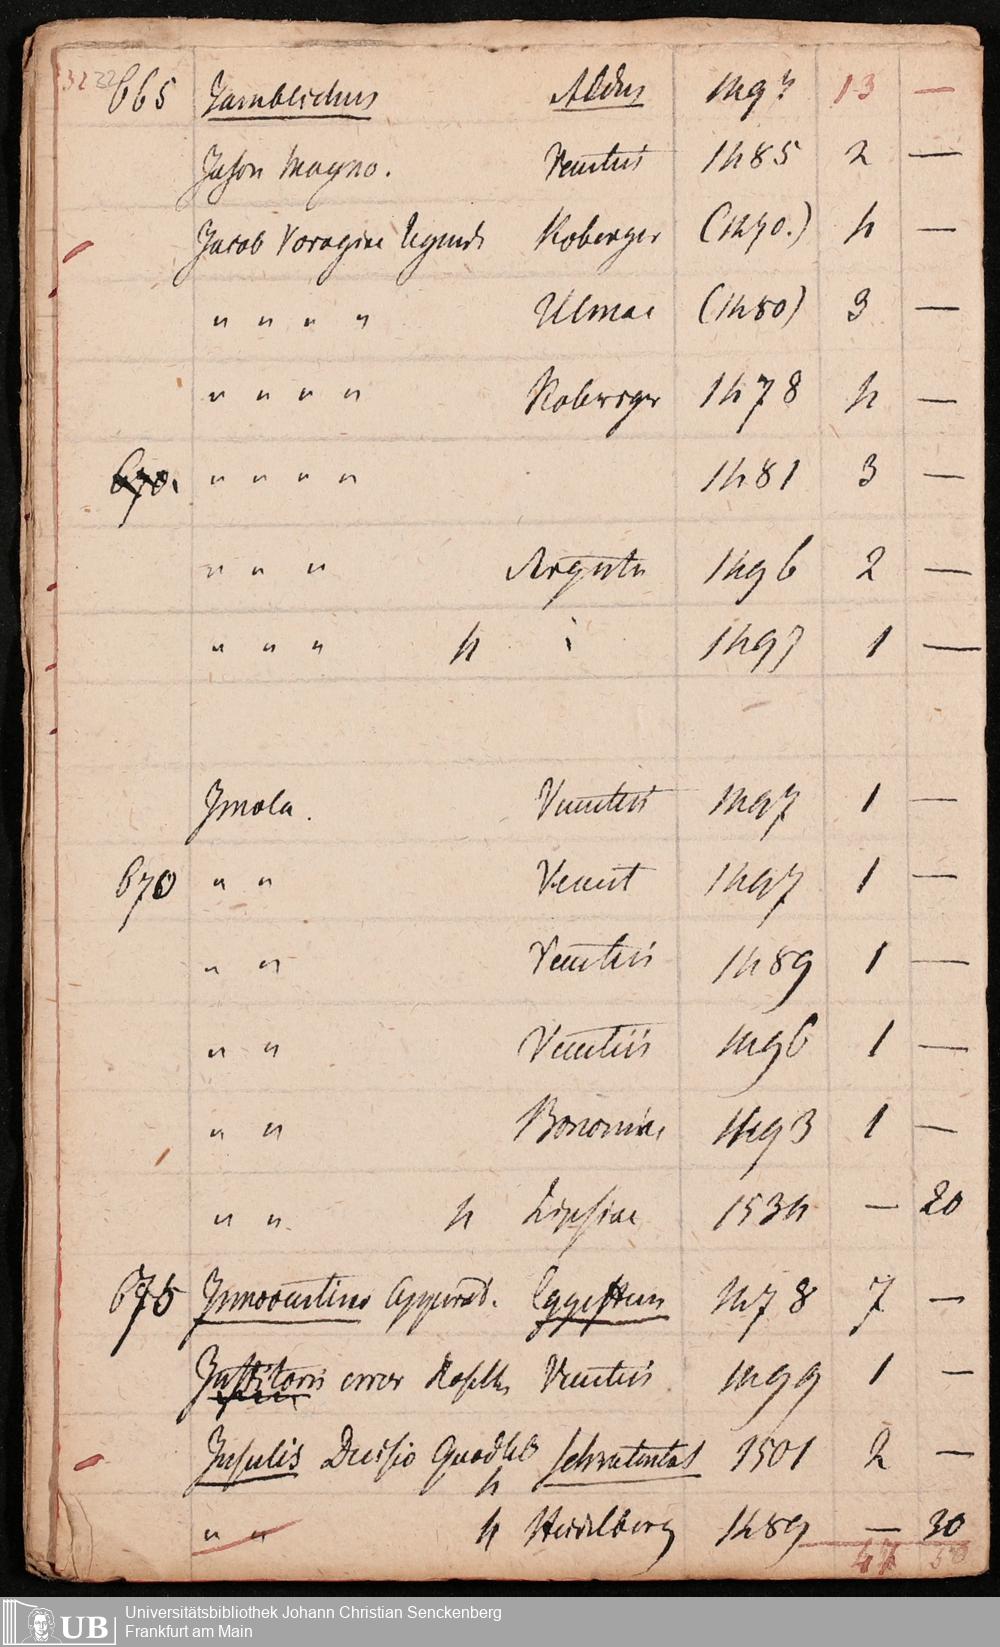 32 32
665 Jamblichus Aldus 1497 13 —
Jason Mayno. Venetiis 1485 2 —
Jacob Voragine legend Koberger (1470.) 4 —
" " " " Ulmae (1480) 3 —
" " " " Koberger 1478 4 —
670. " " " " 1481 3 —
" " " Argenta 1496 2 —
" " " 4 1497 1 —
Imola. Venetiis 1497 1 —
670 " " Venet 1497 1 —
" " Venetiis 1489 1 —
" " Venetiis 1496 1 —
" " Bononiae 1493 1 —
" " 4 Lipsiae 1534 — 20
675 Innocentius Apparat. Eggesteun 1478 7 —
Institoris error Venetiis 1499 1 —
Insulis Decisio Quodlib 4 1501 2 —
" " 4 Heidelberg 1489 — 30
47 50
UB Universitätsbibliothek Johann Christian Senckenberg
Frankfurt am Main